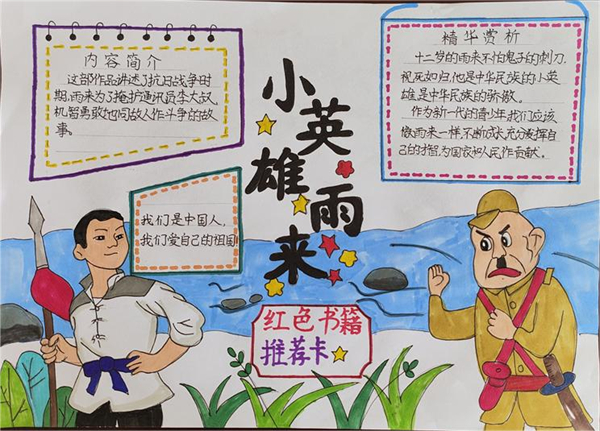 内容简介
这部作品讲述了抗日战争时
期,雨来为了掩护通讯员李大叔,
机智勇敢地同敌人作斗争的故
事。
小英雄雨来
精华赏析
十二岁的雨来不怕鬼子的刺刀,
视死如归,他是中华民族的小英
雄,是中华民族的骄傲。
作为新一代的青少年我们应该
像雨来一样,不断成长,充分发挥自
己的才智,为国家和人民作贡献。
我们是中国人,
我们爱自己的祖国
红色书籍
推荐卡